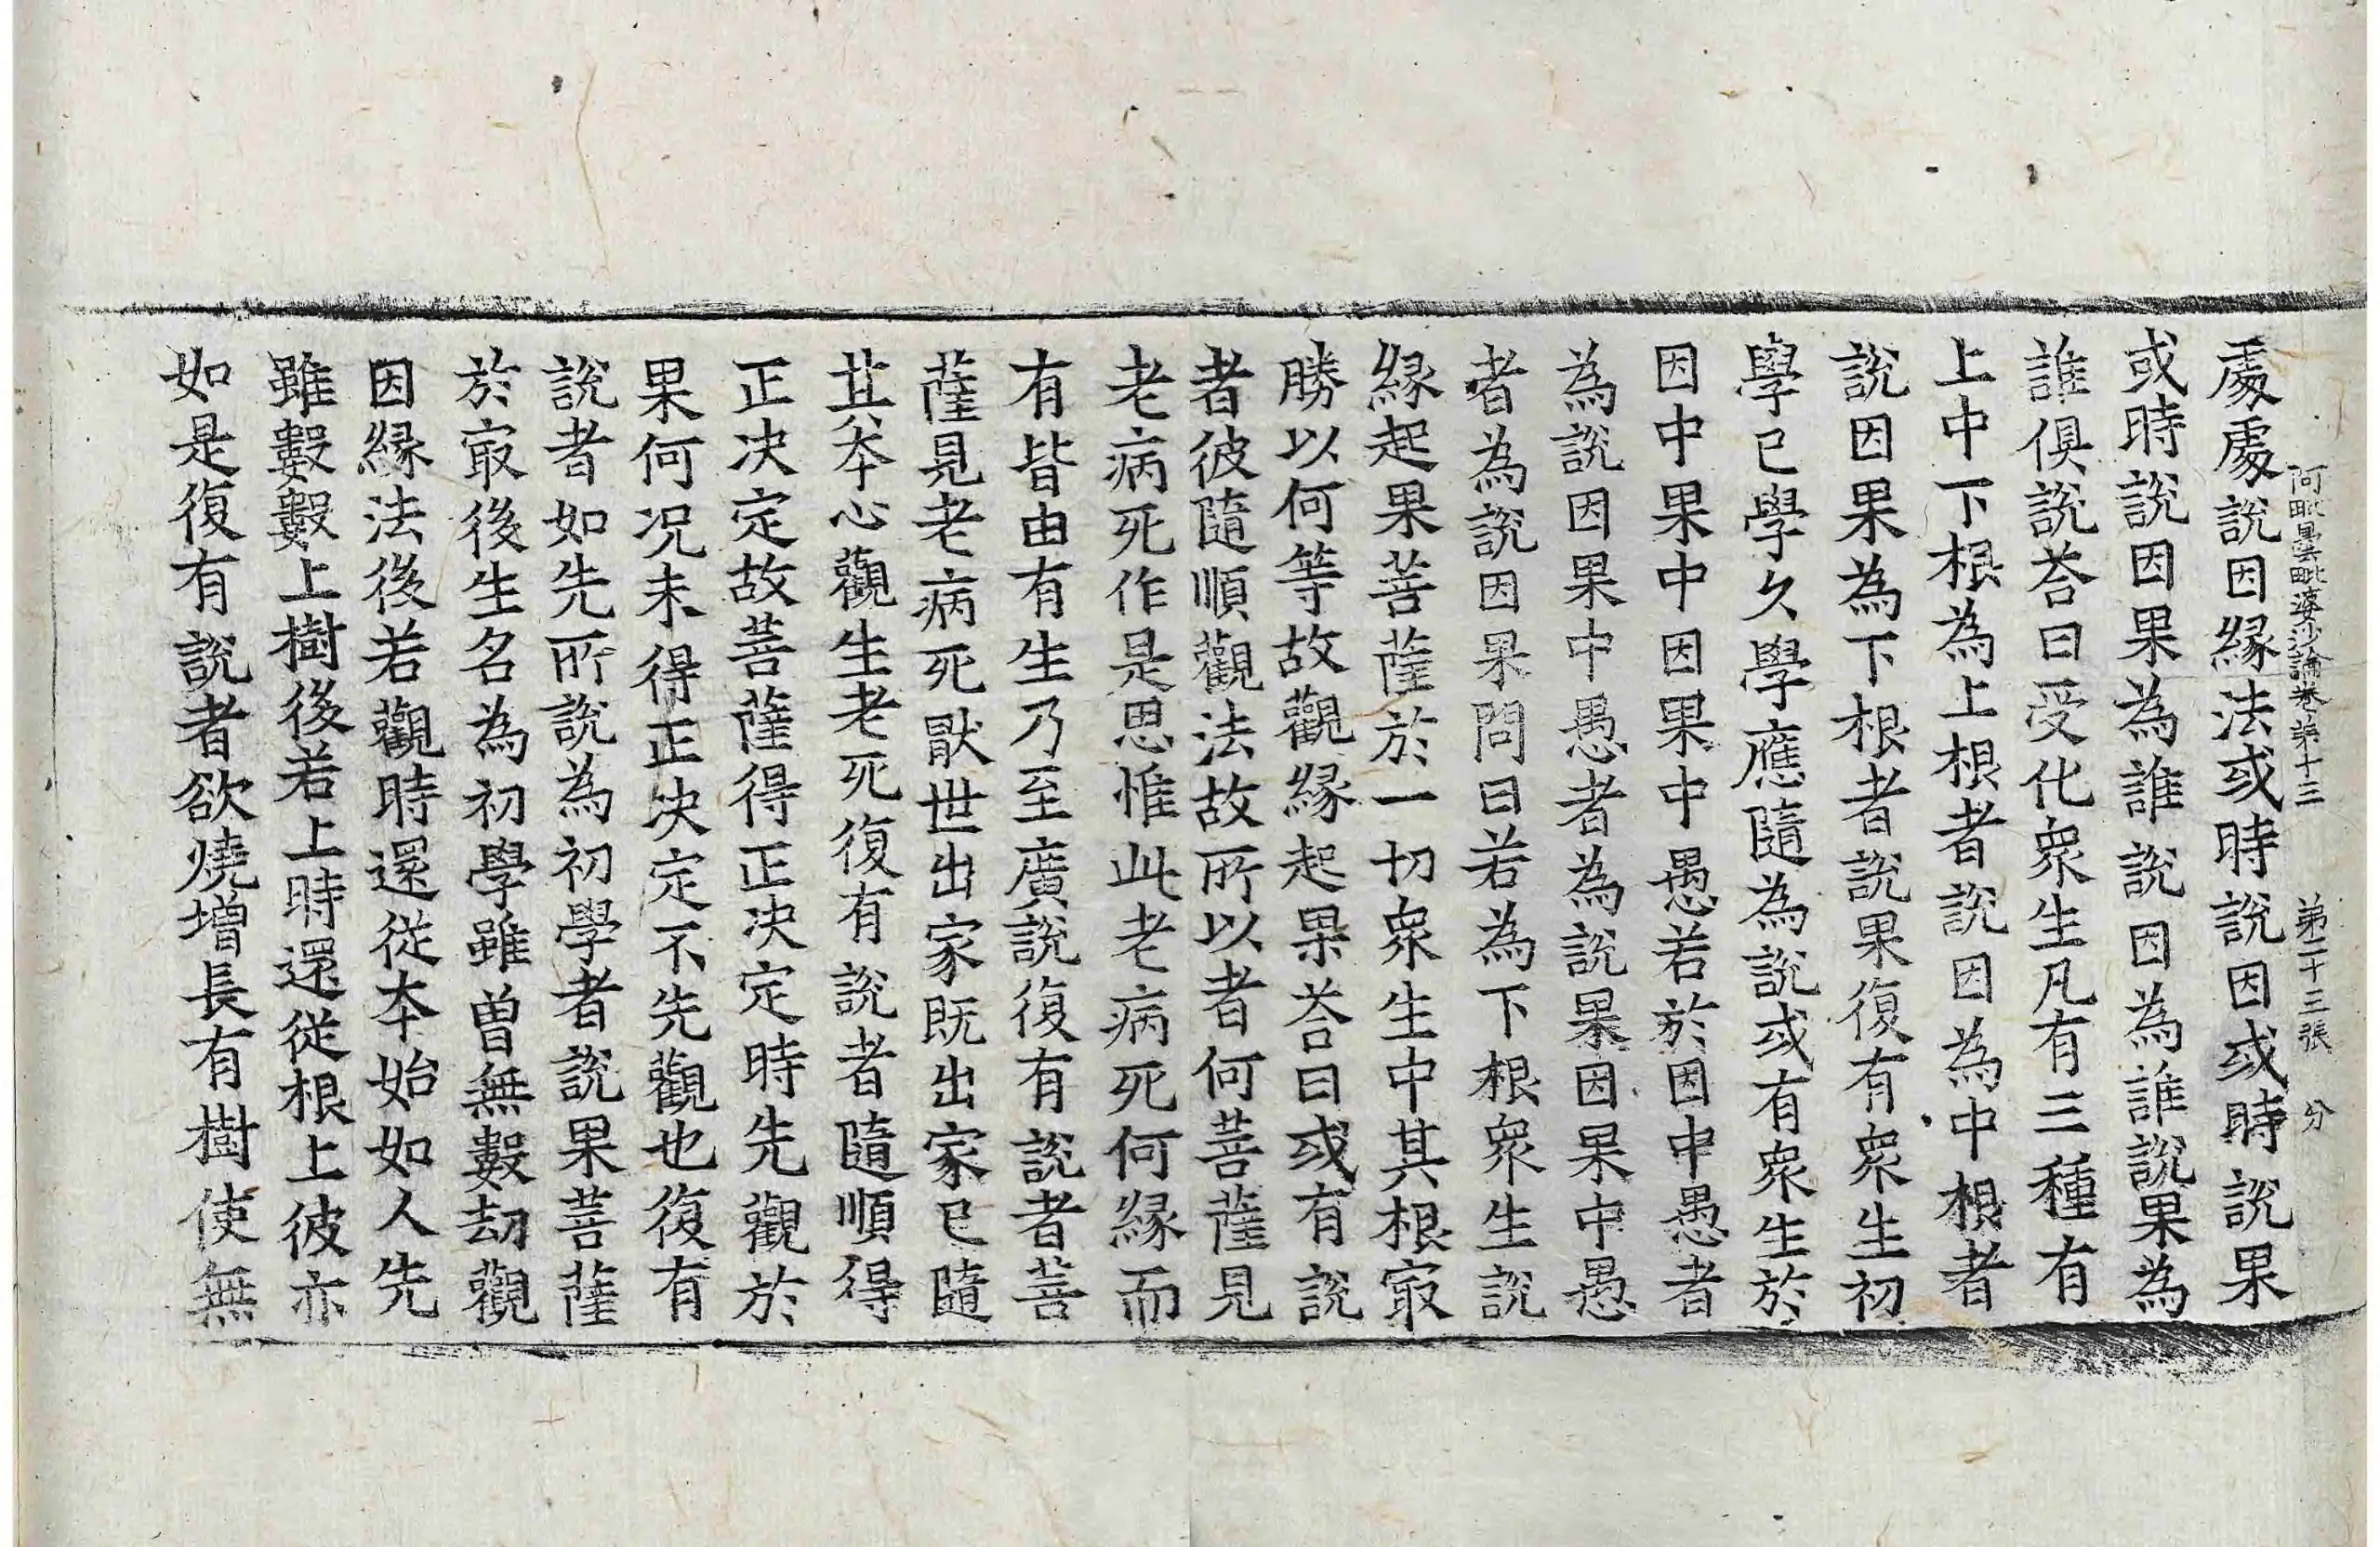 阿毗曇毗婆沙論卷第十三　第二十三張　分
處處說因緣法或時說因或時說果
或時說因果為誰說因為誰說果為
誰俱說荅曰受化衆生凡有三種有
上中下根為上根者說因為中根者
說因果為下根者說果復有衆生初
學已學久學應隨為說或有衆生於
因中果中因果中愚若於因中愚者
為說因果中愚者為說果因果中愚
者為說因果問曰若為下根衆生說
緣起果菩薩於一切衆生中其根冣
勝以何等故觀緣起果荅曰或有說
者彼隨順觀法故所以者何菩薩見
老病死作是思惟此老病死何緣而
有皆由有生乃至廣說復有說者菩
薩見老病死猒世出家既出家已隨
其本心觀生老死復有說者隨順得
正决定故菩薩得正决定時先觀於
果何况未得正决定不先觀也復有
說者如先所說為初學者說果菩薩
於冣後生名為初學雖曾無數劫觀
因緣法後若觀時還從本始如人先
雖數數上樹後若上時還從根上彼亦
如是復有說者欲燒增長有樹使無